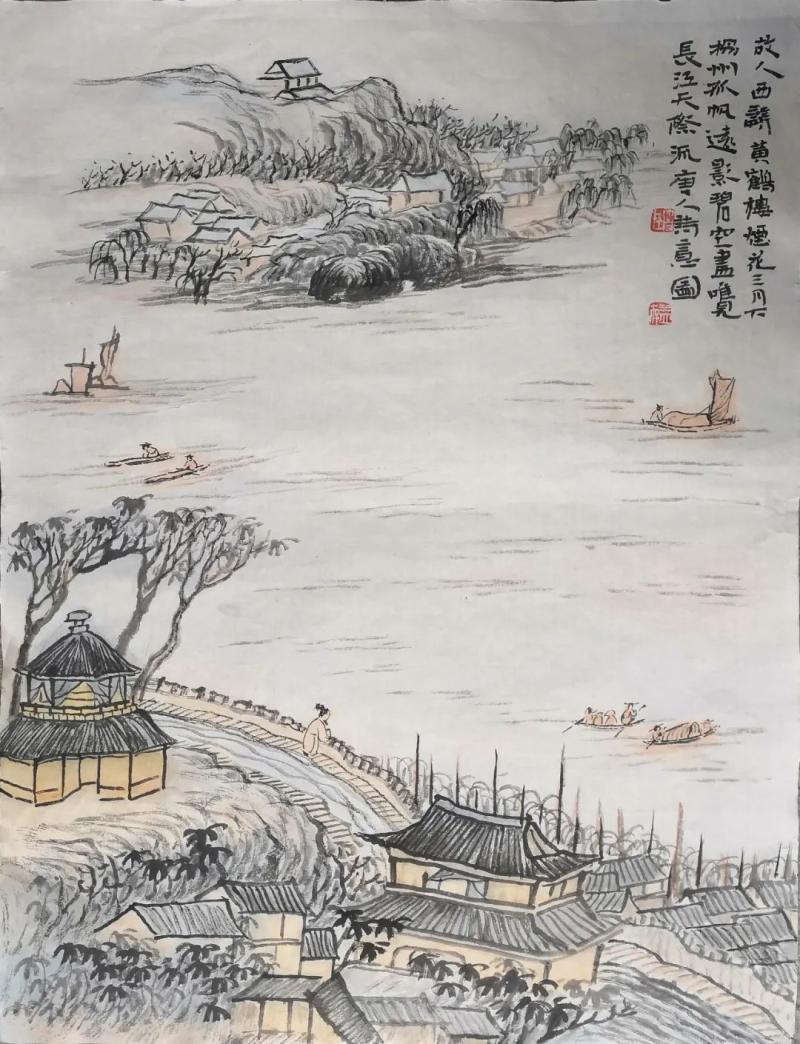 故人西辭黄鶴樓煙花三月下
揚州孤帆遠影碧空盡唯見
長江天際流唐人詩意圖